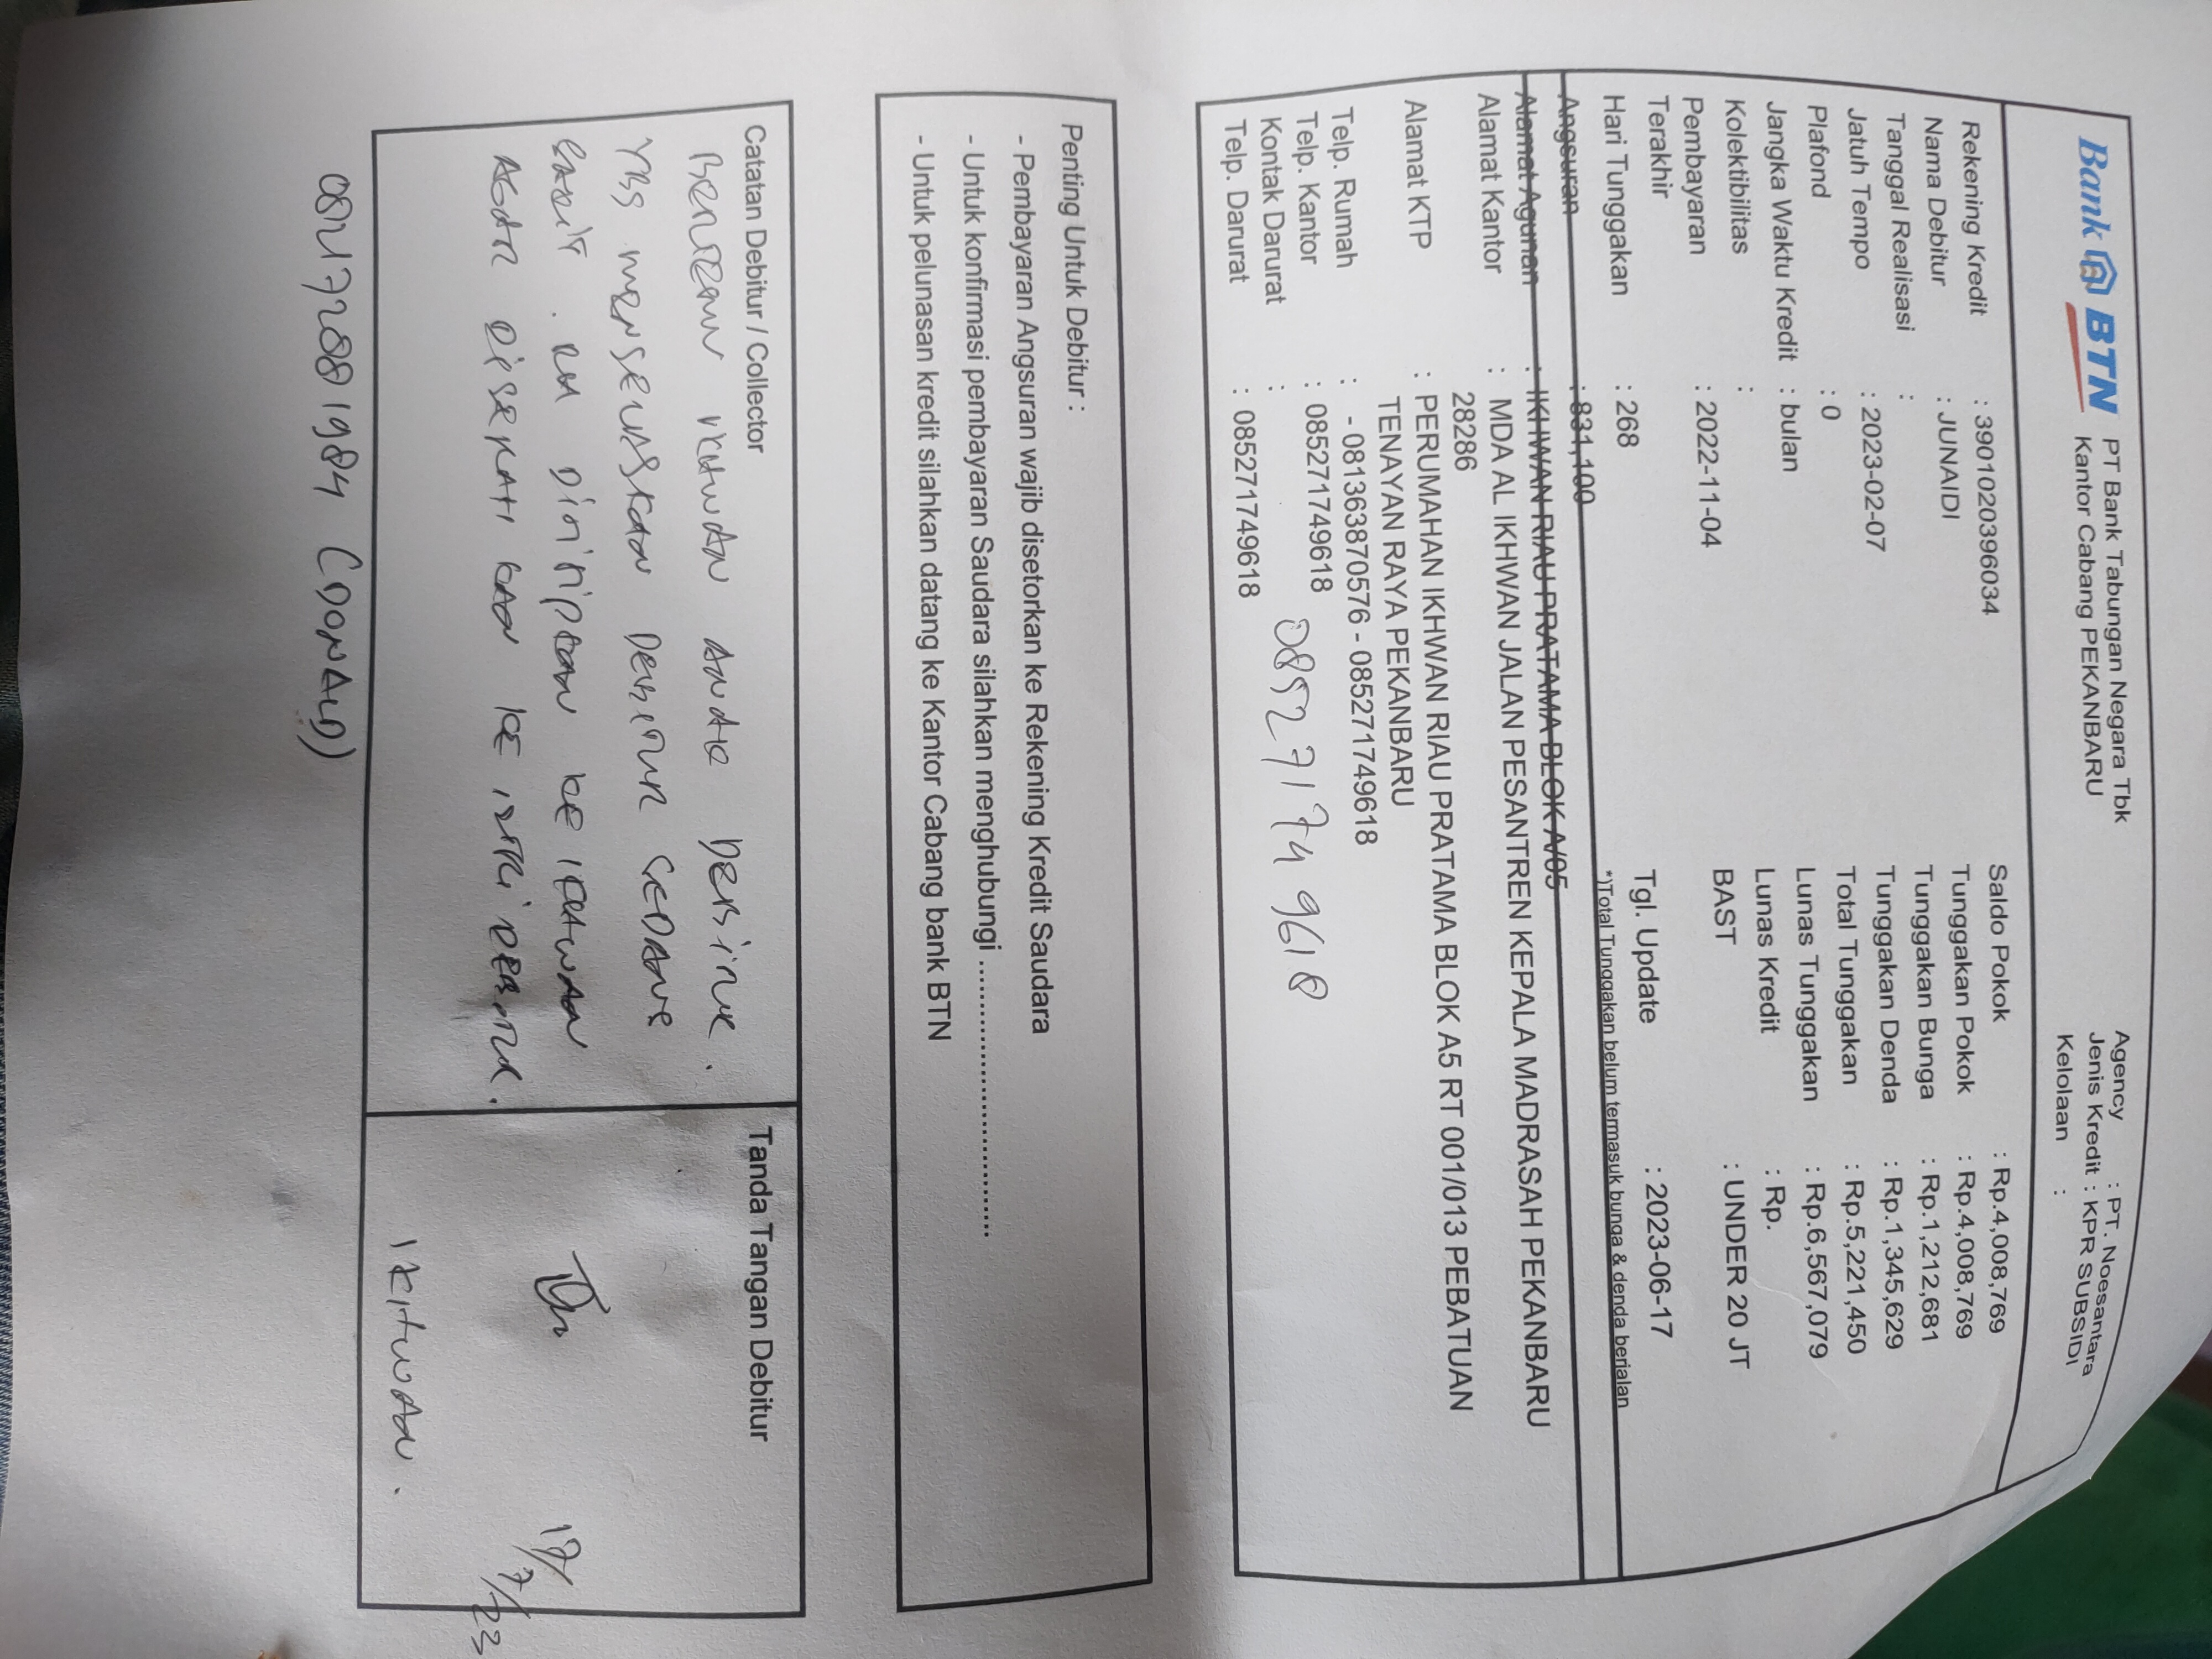 Bank BTN
PT Bank Tabungan Negara Tbk
Kantor Cabang PEKANBARU
Agency : PT. Noesantara
Jenis Kredit : KPR SUBSIDI
Kelolaan :
Rekening Kredit : 3901020396034
Nama Debitur : JUNAIDI
Tanggal Realisasi :
Jatuh Tempo : 2023-02-07
Plafond : 0
Jangka Waktu Kredit : bulan
Kolektibilitas :
Pembayaran : 2022-11-04
Terakhir
Hari Tunggakan : 268
Saldo Pokok : Rp.4,008,769
Tunggakan Pokok : Rp.4,008,769
Tunggakan Bunga : Rp.1,212,681
Tunggakan Denda : Rp.1,345,629
Total Tunggakan : Rp.5,221,450
Lunas Tunggakan : Rp.6,567,079
Lunas Kredit : Rp.
BAST : UNDER 20 JT
Tgl. Update : 2023-06-17
*)Total Tunggakan belum termasuk bunga & denda berjalan
Angsuran : 831,100
Alamat Agunan : IKHWAN RIAU PRATAMA BLOK A/05
Alamat Kantor : MDA AL IKHWAN JALAN PESANTREN KEPALA MADRASAH PEKANBARU
28286
Alamat KTP : PERUMAHAN IKHWAN RIAU PRATAMA BLOK A5 RT 001/013 PEBATUAN
TENAYAN RAYA PEKANBARU
Telp. Rumah : - 081363870576 - 085271749618
Telp. Kantor : 085271749618
Kontak Darurat : 0852 7174 9618
Telp. Darurat : 085271749618
Penting Untuk Debitur :
- Pembayaran Angsuran wajib disetorkan ke Rekening Kredit Saudara
- Untuk konfirmasi pembayaran Saudara silahkan menghubungi ..............................
- Untuk pelunasan kredit silahkan datang ke Kantor Cabang bank BTN
Catatan Debitur / Collector
Tanda Tangan Debitur
IKHWAN ANAK DEBITUR.
YBS DEBITUR SEDANG
SAKIT. DITITIPKAN KE IKHWAN
AGAR KE ISTRI DEBITUR.
17/7/23
IKHWAN.
081172881984 (DONALD)